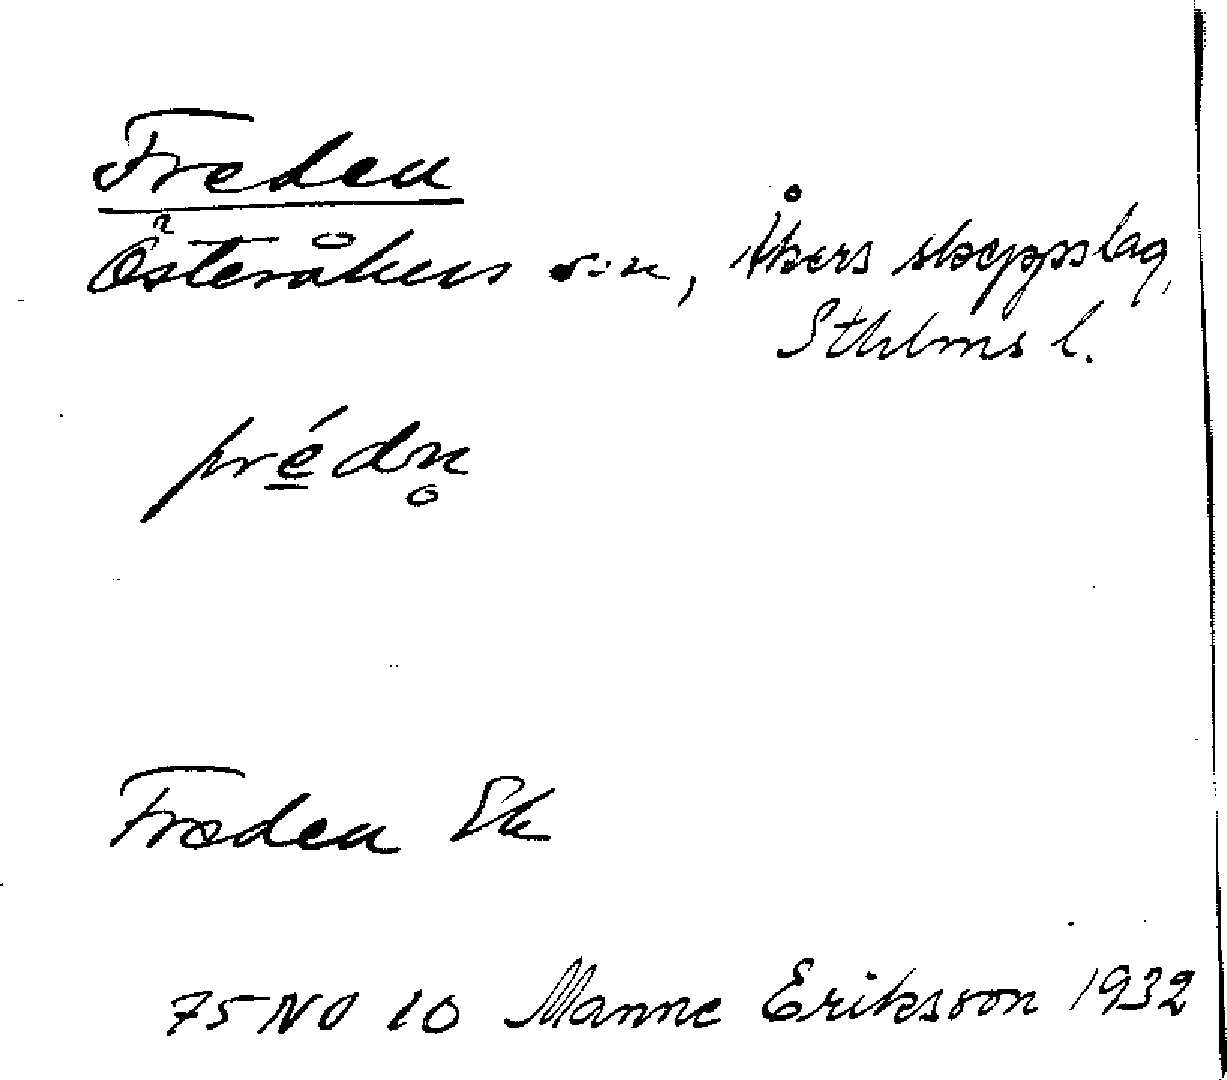 Freden
Österåkers sn, Åkers skeppslag,
Sthlms l.
frédn̥
Freden Ek
75 NO 10 Manne Eriksson 1932